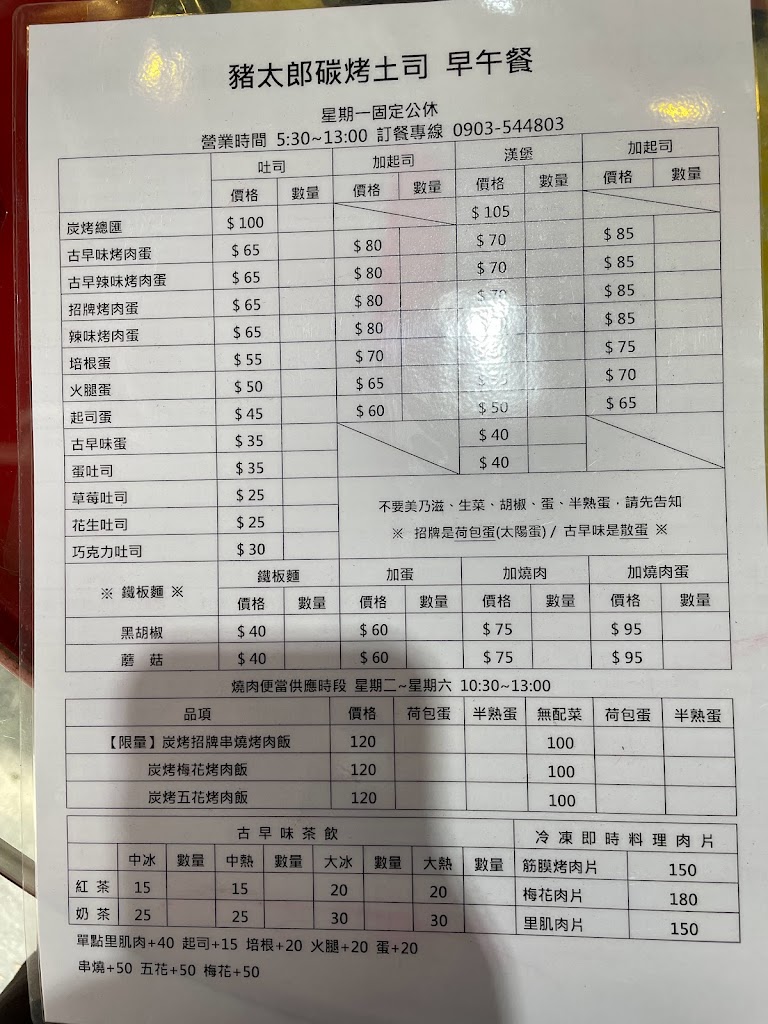 豬太郎碳烤土司 早午餐
星期一固定公休
營業時間 5:30~13:00 訂餐專線 0903-544803
吐司 加起司 漢堡 加起司
價格 數量 價格 數量 價格 數量 價格 數量
炭烤總匯 $100 $105
古早味烤肉蛋 $65 $80 $70 $85
古早辣味烤肉蛋 $65 $80 $70 $85
招牌烤肉蛋 $65 $80 $70 $85
辣味烤肉蛋 $65 $80 $85
培根蛋 $55 $70 $75
火腿蛋 $50 $65 $70
起司蛋 $45 $60 $50 $65
古早味蛋 $35 $40
蛋吐司 $35 $40
草莓吐司 $25
花生吐司 $25
巧克力吐司 $30
不要美乃滋、生菜、胡椒、蛋、半熟蛋，請先告知
※ 招牌是荷包蛋(太陽蛋) / 古早味是散蛋 ※
※ 鐵板麵 ※ 鐵板麵 加蛋 加燒肉 加燒肉蛋
價格 數量 價格 數量 價格 數量 價格 數量
黑胡椒 $40 $60 $75 $95
蘑菇 $40 $60 $75 $95
燒肉便當供應時段 星期二~星期六 10:30~13:00
品項 價格 荷包蛋 半熟蛋 無配菜 荷包蛋 半熟蛋
【限量】炭烤招牌串燒烤肉飯 120 100
炭烤梅花烤肉飯 120 100
炭烤五花烤肉飯 120 100
古早味茶飲
中冰 數量 中熱 數量 大冰 數量 大熱 數量
紅茶 15 15 20 20
奶茶 25 25 30 30
冷凍即時料理肉片
筋膜烤肉片 150
梅花肉片 180
里肌肉片 150
單點里肌肉+40 起司+15 培根+20 火腿+20 蛋+20
串燒+50 五花+50 梅花+50